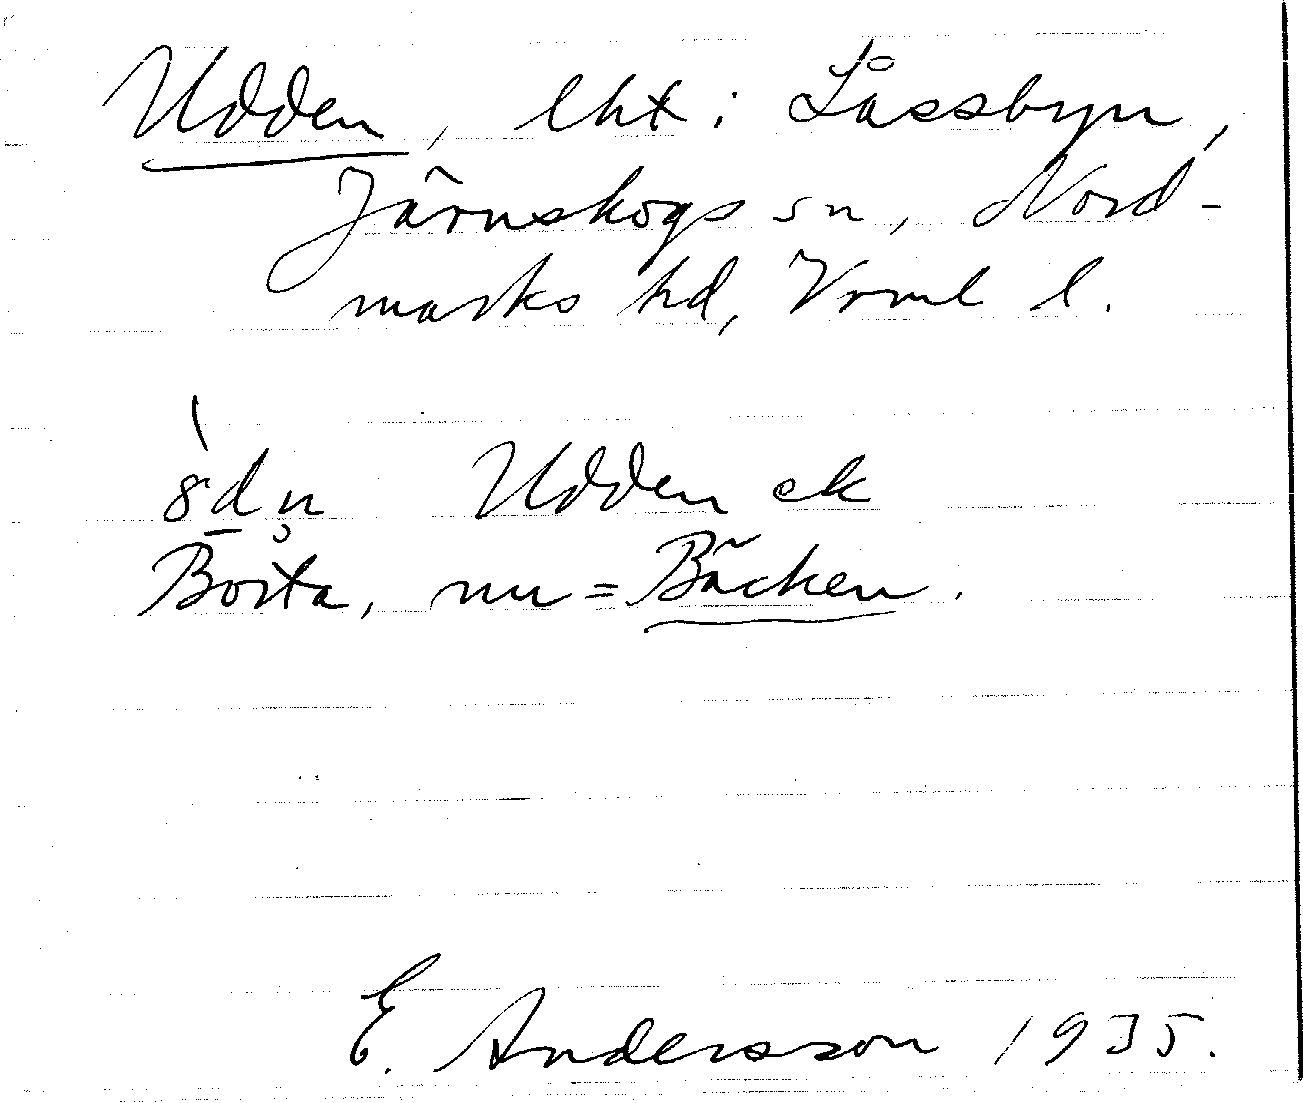 Udden, lht i Låssbyn,
Järnskogs sn, Nord-
marks hd, Vrml l.
Udden ek
Borta, nu = Bäcken.
E. Andersson 1935.